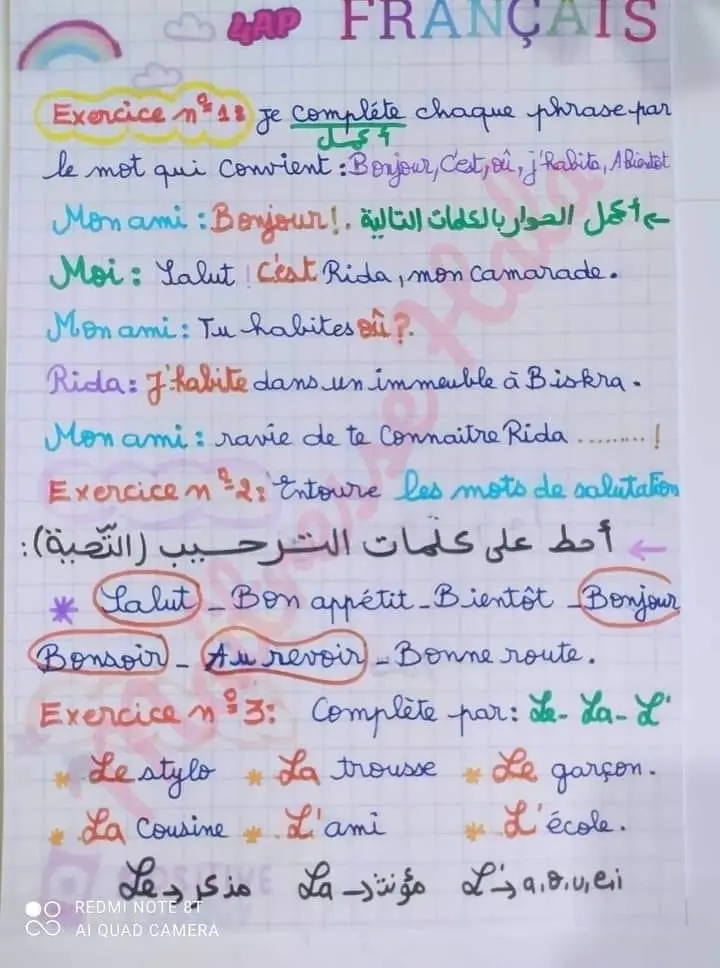 4AP FRANÇAIS
Exercice n°1: je complète chaque phrase par
أكمل
le mot qui convient : Bonjour, C'est, où, j'habite, A Bientôt
Mon ami : Bonjour !. ← أكمل الحوار بالكلمات التالية
Moi : Salut ! C'est Rida, mon camarade.
Mon ami : Tu habites où ?.
Rida : J'habite dans un immeuble à Biskra.
Mon ami : ravie de te connaitre Rida ......... !
Exercice n°2: Entoure les mots de salutation
← أحط على كلمات الترحيب (التّحية):
* Salut - Bon appétit - Bientôt - Bonjour
Bonsoir - Au revoir - Bonne route.
Exercice n°3: Complète par: Le - La - L'
* Le stylo * La trousse * Le garçon.
* La Cousine * L'ami * L'école.
Le → مذكر La → مؤنث L' → a, o, u, e, i
POSITIVE
REDMI NOTE 8T
AI QUAD CAMERA